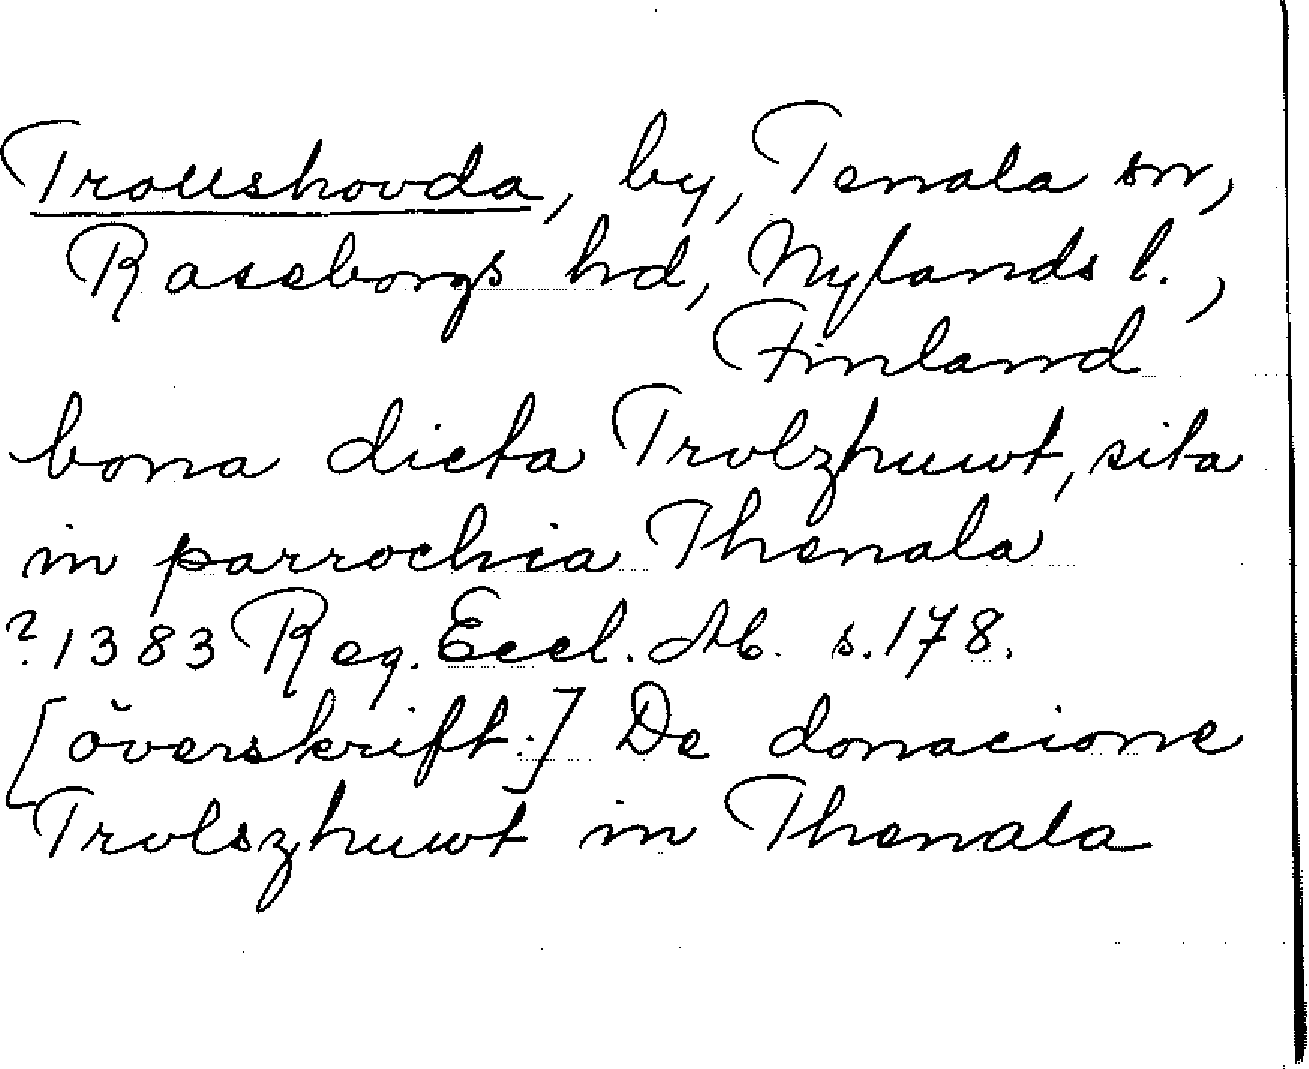 Trollshovda, by, Tenala sn,
Raseborgs hd, Nylands l.,
Finland
bona dicta Trolzhuwt, sita
in parrochia Thenala
?1383 Reg. Eccl. Ab. s.178.
[överskrift:] De donacione
Trolszhuwt in Thenala